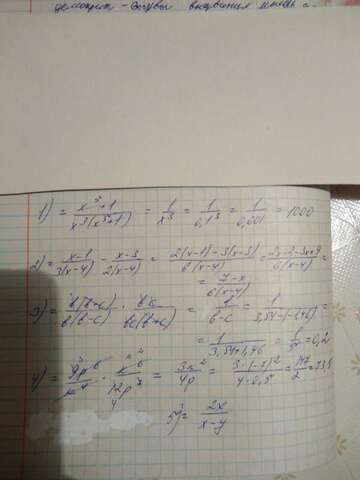 1) = x⁵+1 / x³(x⁵+1) = 1/x³ = 1/0,1³ = 1/0,001 = 1000
2) = x-1 / 3(x-4) - x-3 / 2(x-4) = 2(x-1)-3(x-3) / 6(x-4) = 2x-2-3x+9 / 6(x-4) =
= 7-x / 6(x-4)
3) = b(b+c) / b(b-c) · bc / bc(b+c) = 1 / b-c = 1 / 3,54-(-1,46) =
= 1 / 3,54+1,46 = 1/5 = 0,2
4) = 9p⁶ / k⁴ · k⁶ / 12p⁷ = 3k² / 4p = 3·(-7)² / 4·0,5 = 147/2 = 73,5
5) = 2x / x-y